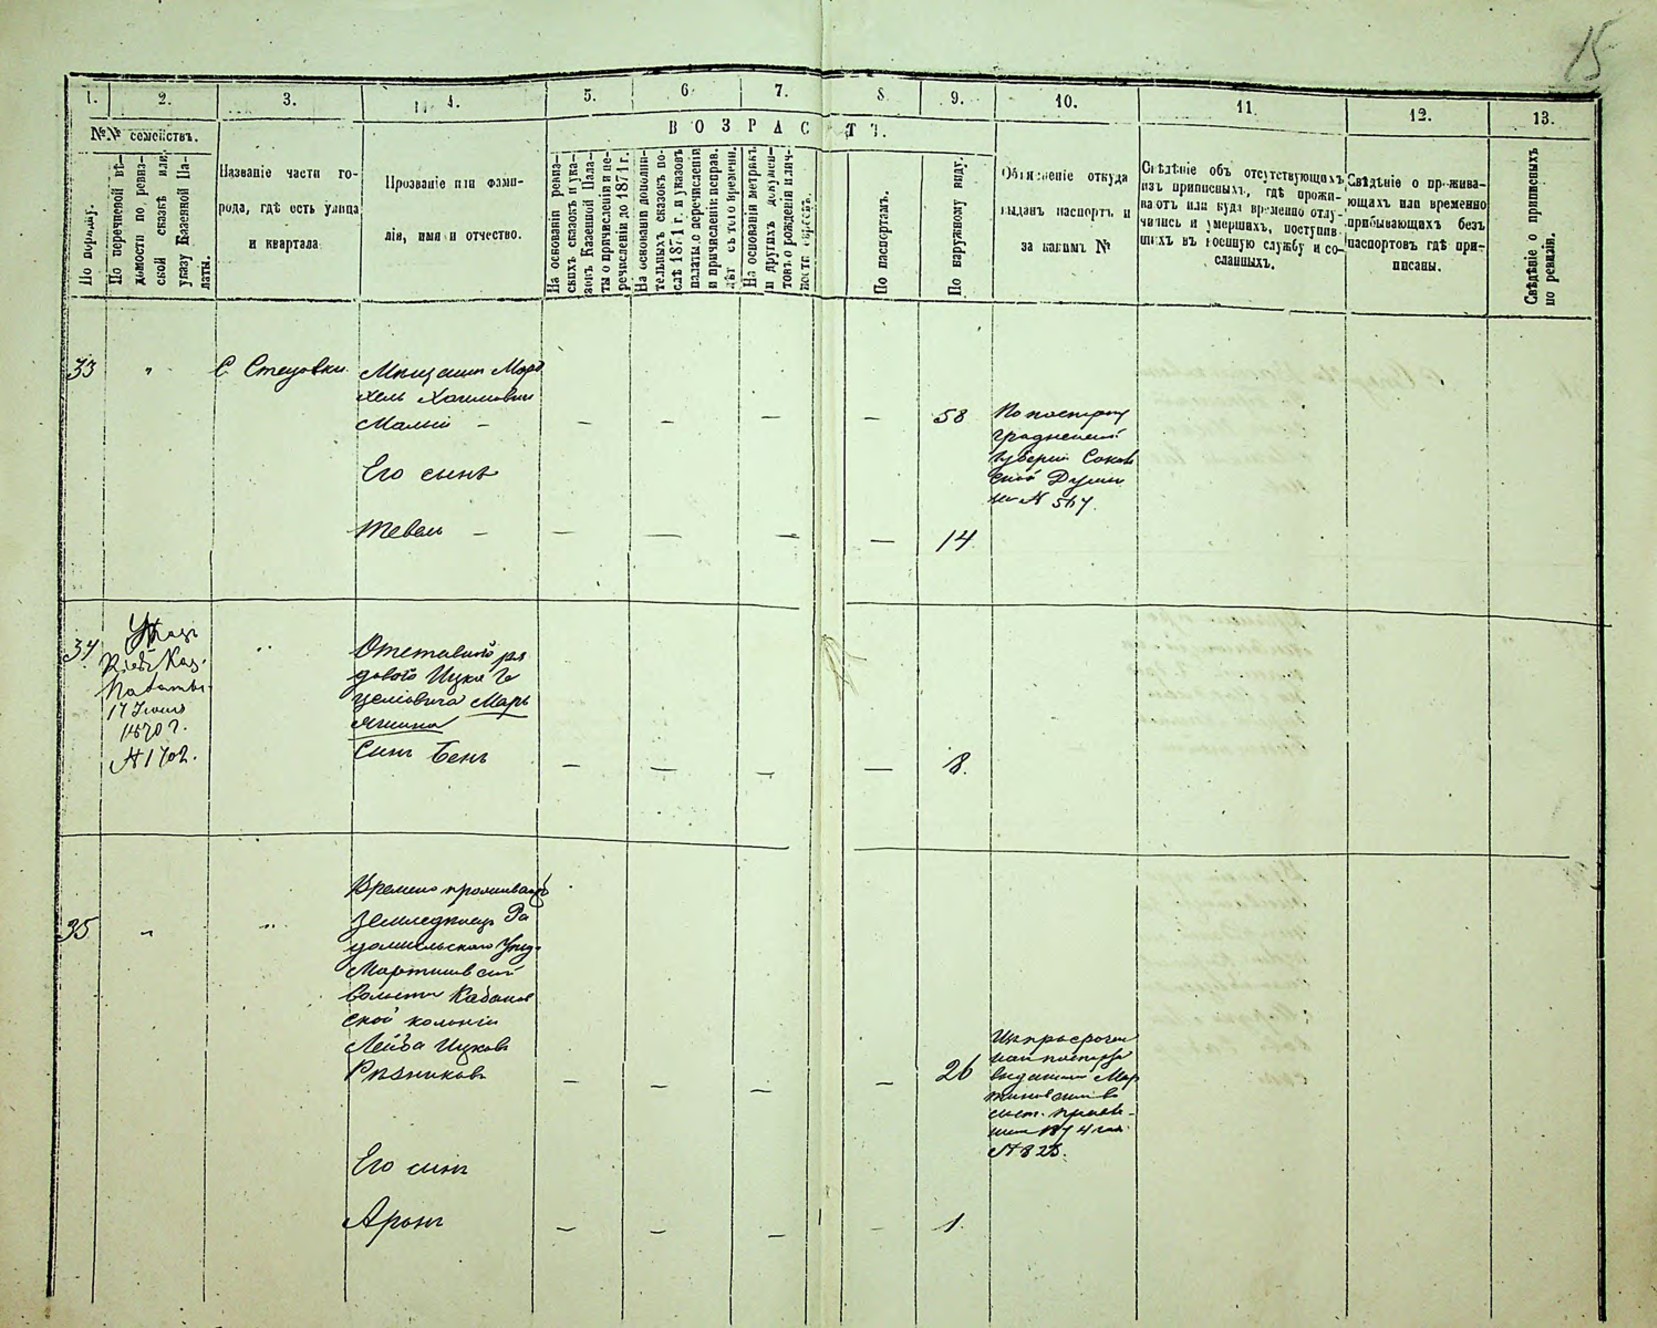 15
1. 2. 3. 4. 5. 6. 7. 8. 9. 10. 11. 12. 13.
№№ семействъ.
ВОЗРАСТЪ.
По порядку.
По перечневой вѣ-
домости по ревиз-
ской сказкѣ или
указу Казенной Па-
латы.
Названіе части го-
рода, гдѣ есть улица
и квартала
Прозваніе или фами-
лія, имя и отчество.
На основаніи ревиз-
скихъ сказокъ и ука-
зовъ Казенной Пала-
ты о причисленіи и пе-
речисленіи до 1871 г.
На основаніи дополни-
тельныхъ сказокъ по-
слѣ 1871 г. и указовъ
палаты о перечисленіи
и причисленіи исправ.
лѣт съ того времени.
На основаніи метрикъ
и другихъ докумен-
товъ о рожденіи и лич-
По паспортамъ.
По наружному виду.
Объясненіе откуда
выданъ паспортъ и
за какимъ №
Свѣдѣніе объ отсутствующихъ
изъ приписныхъ, гдѣ прожи-
ваютъ или куда временно отлу-
чились и умершихъ, поступив-
шихъ въ военную службу и со-
сланныхъ.
Свѣдѣніе о прожива-
ющихъ или временно
прибывающихъ безъ
паспортовъ гдѣ при-
писаны.
Свѣдѣніе о приписныхъ
по ревизіи.
33 " С Стецовки Мѣщанин Мор
хель Хаимович
Малый — — — — — 58
По паспорту
Гродненской
губерніи Соколь
ской Думы
за № 567.
Его сынъ
Тевель — — — — — 14
34 "
Указъ
Кіевъ Каз.
Палаты
17 Іюня
1870 г.
№ 1702.
Отставного ря
дового Ицка Ге
целіовича Марь
яшина
Синъ Бенъ — — — — 8.
35 " "
Времено проживающ
Земледѣлец Ра
домисльского Уѣзд.
Мартиновской
волости Кабанов
ской колоніи
Лейба Ицковъ
Рѣзниковъ — — — — 26
Изпросрочен
ной паспорта
виданой Мар
тиновским во
лост. правле-
нием 1874 года
№ 825.
Его синъ
Аронъ — — — — 1.